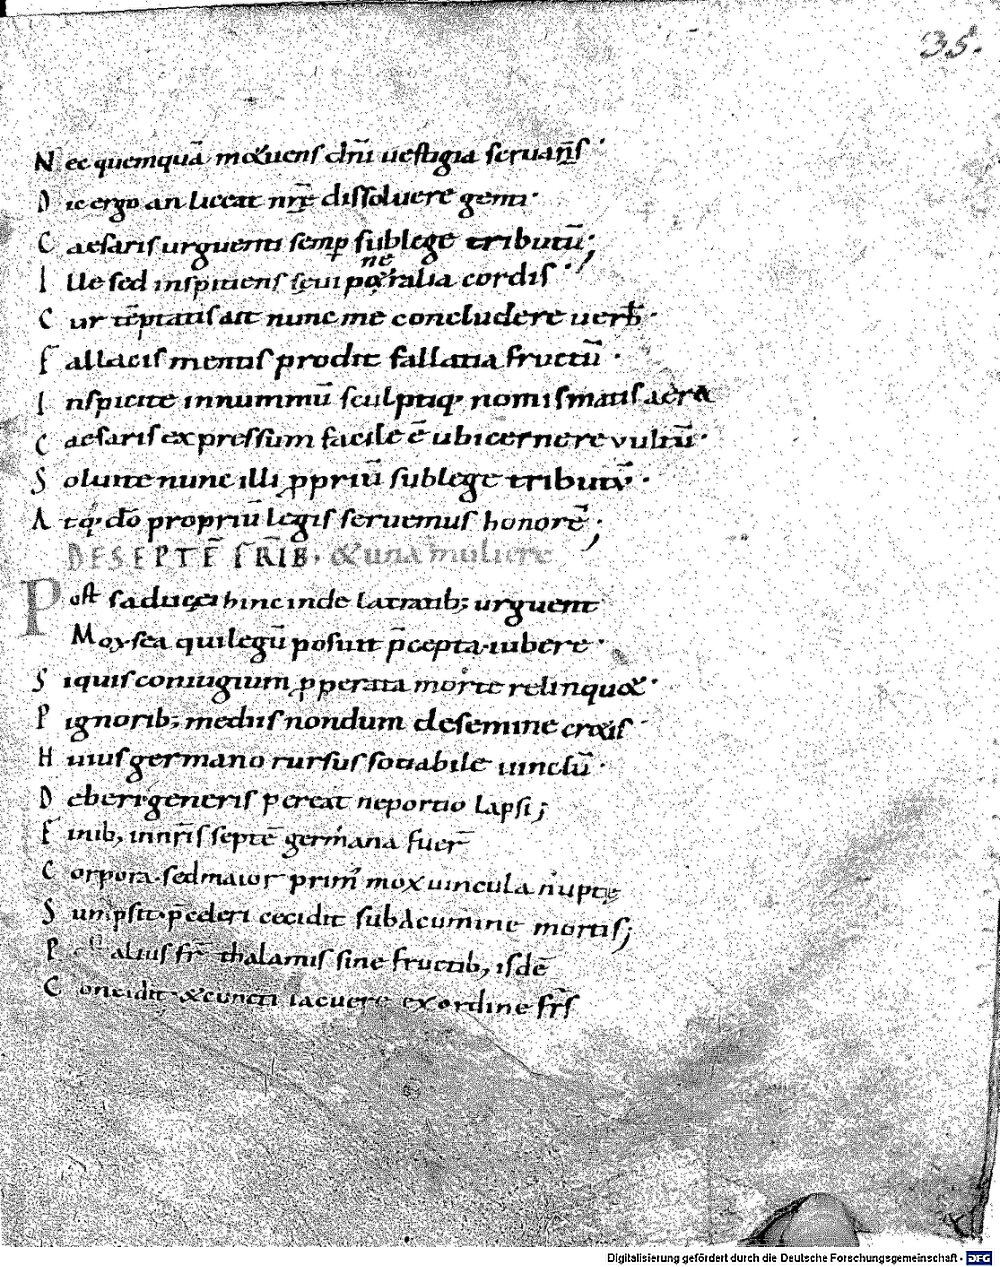 35.
N ec quemquā metuens dn̄i uestigia seruan̄s
D ic ergo an liceat nr̄e dissoluere genti·
C aesaris urguenti semp̲ sublege tributū;
I lle sed inspiciens sęui penetralia cordis
C ur tēptatis ait nunc me concludere uerb̄·
F allacis mentis prodit fallatia fructū·
I nspicite innummū sculptiq· nomismatis aera
C aesaris expressum facile ē ubi cernere vultū·
S oluite nunc illi ꝓpriū sublege tributū·
A tq· do̅ propriū legis seruemus honorē;
DE SEPTĒ FR̄IB· &una muliere
P ost saducei hinc inde latratib; urguent
Moysea qui legū posuit p̄cepta iubere·
S iquis coniugium ꝓperata morte relinqu&·
P ignorib; mediis nondum de semine cr&is·
H uius germano rursus sotiabile uinclū·
D eberi generis pereat ne portio lapsi;
F inib; innr̄is septē germana fuer̄
C orpora· sed maior prim̄ mox uincula nuptę
S umpsit· p̄celeri cecidit sub acumine mortis;
P alius fr̄ thalamis sine fructib; isdē
C oncidit &cuncti iacuere ex ordine fr̄s
Digitalisierung gefördert durch die Deutsche Forschungsgemeinschaft - DFG